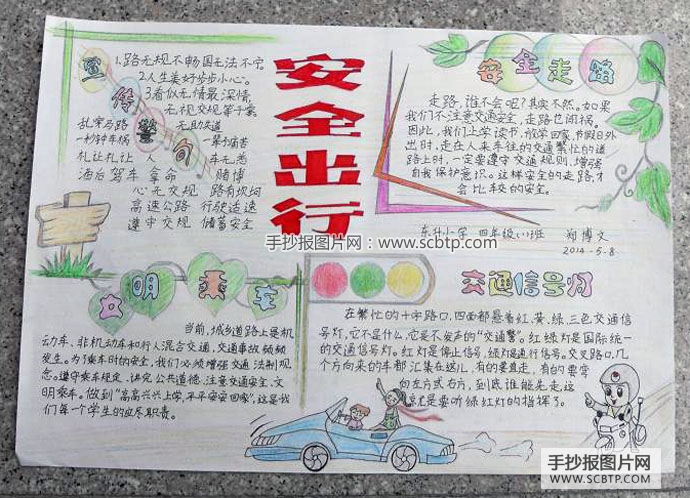 安全出行
宣传警句
1.路无规不畅国无法不宁。
2.人生美好步步小心。
3.看似无情最深情,
无视交规等于零。
乱穿马路 无助失道
一秒钟车祸 一辈子痛苦
礼让礼让 人 车无恙
酒后驾车 拿命 赌博
心无交规 路有坎坷
高速公路 行驶适速
遵守交规 储蓄安全
安全走路
走路,谁不会呢?其实不然。如果
我们不注意交通安全,走路也闯祸。
因此,我们上学读书、放学回家、节假日外
出时,走在人来车往的交通繁忙的道
路上时,一定要遵守交通规则,增强
自我保护意识。这样安全的走路,才
会比较的安全。
东升小学 四年级(1)班 郑博文
2014-5-8
手抄报图片网:www.scbtp.com
文明乘车
当前,城乡道路上是机
动车、非机动车和行人混合交通,交通事故频频
发生。为了乘车时的安全,我们必须增强交通法制观
念。遵守乘车规定,讲究公共道德,注意交通安全,文
明乘车。做到“高高兴兴上学,平平安安回家”,这是我
们每个学生的应尽职责。
交通信号灯
在繁忙的十字路口,四面都悬着红、黄、绿、三色交通信
号灯,它不是什么,它是不发声的“交通警”。红绿灯是国际统一
的交通信号灯。红灯是停止信号,绿灯是通行信号。交叉路口,几
个方向来的车都汇集在这儿,有的要直走,有的要弯
向左方或右方,到底谁能先走这
就是要听绿红灯的指挥了。
手抄报图片网
SCBTP.COM